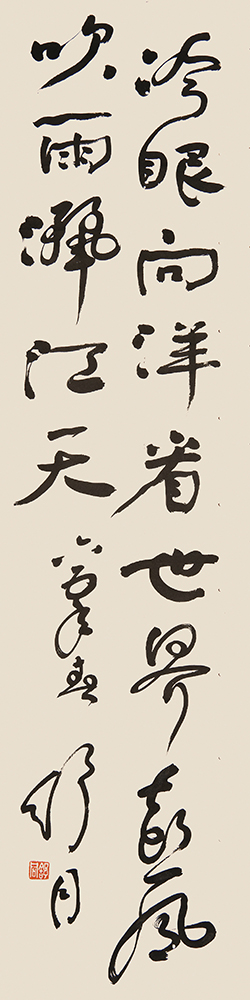 冷眼向洋看世界熱風
吹雨灑江天